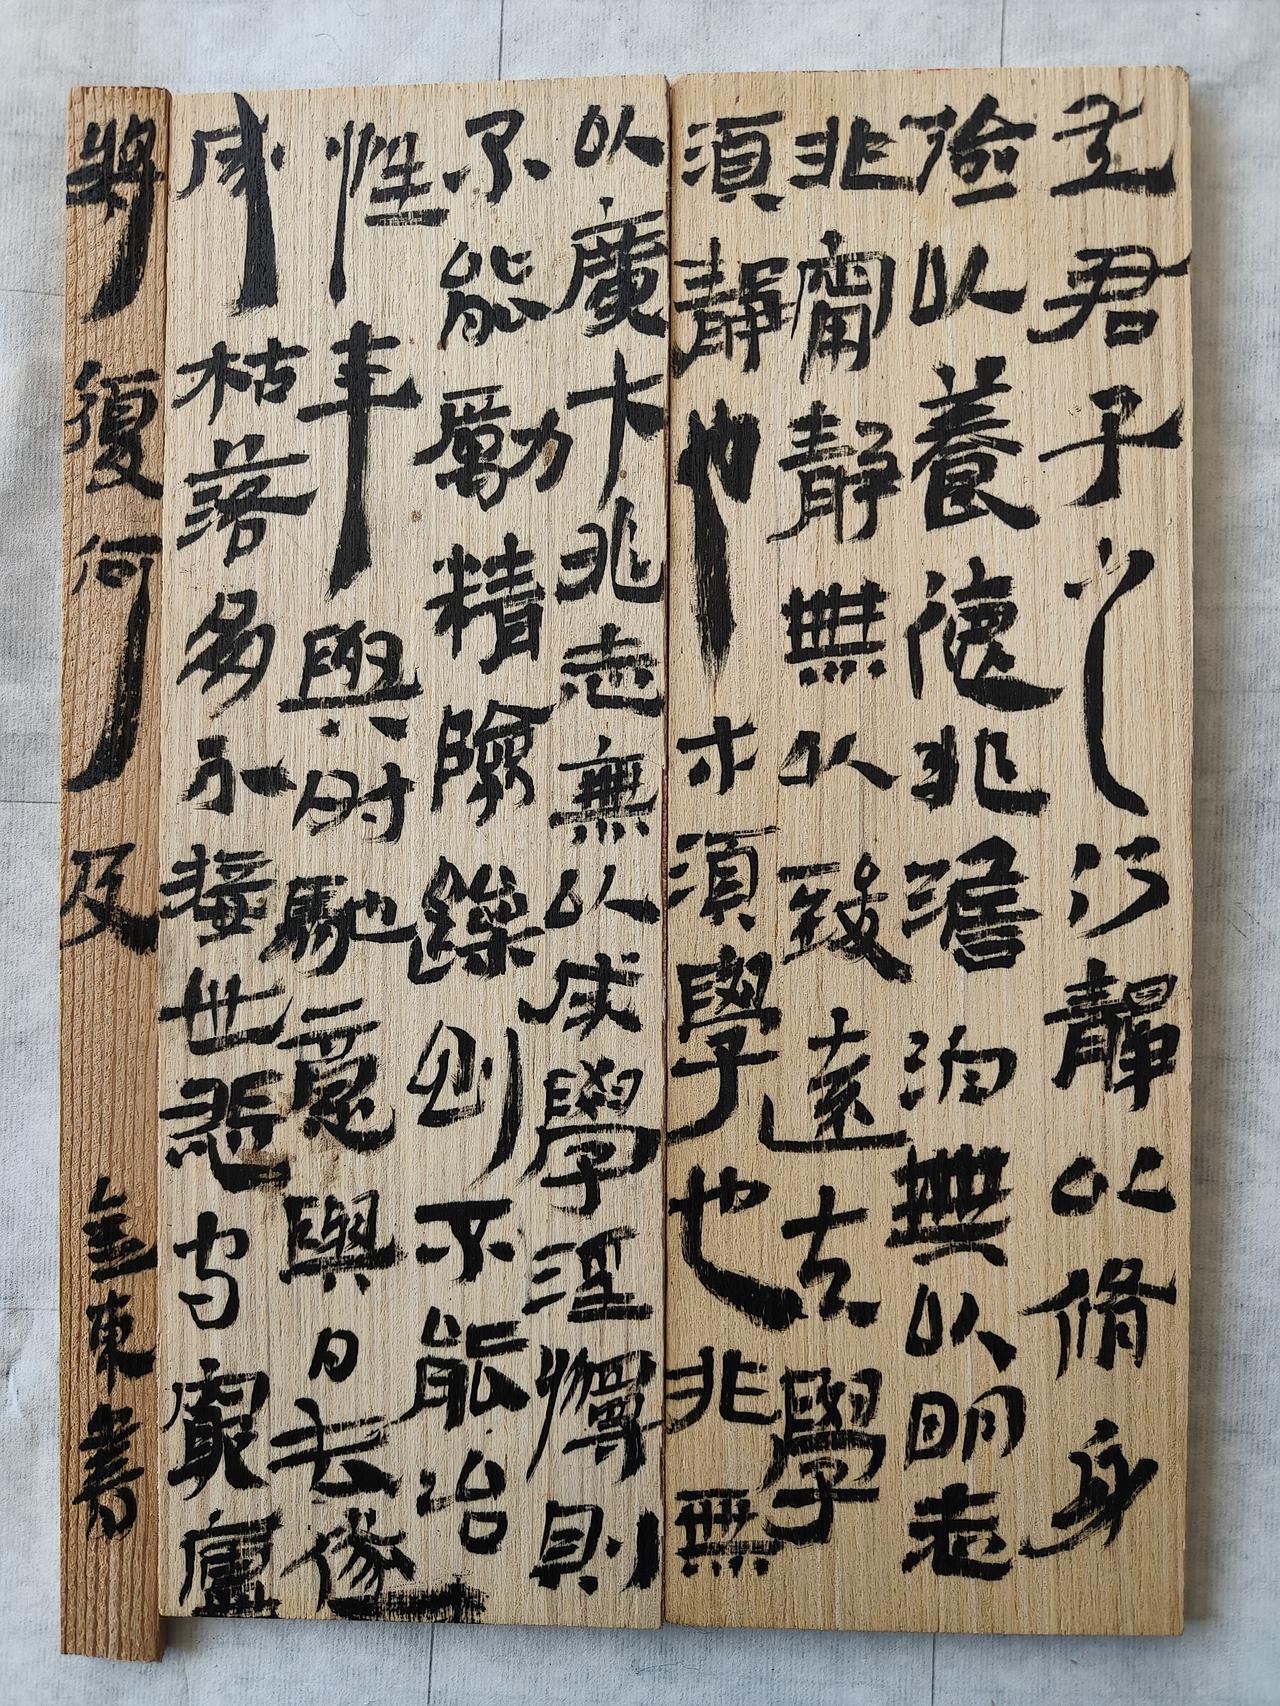 夫君子之行靜以脩身
儉以養德非澹泊無以明志
非甯靜無以致遠夫學
須靜也才須學也非無
以廣才非志無以成學淫慢則
不能勵精險躁則不能治
性年與時馳意與日去遂
成枯落多不接世悲守窮廬
將復何及 金東書